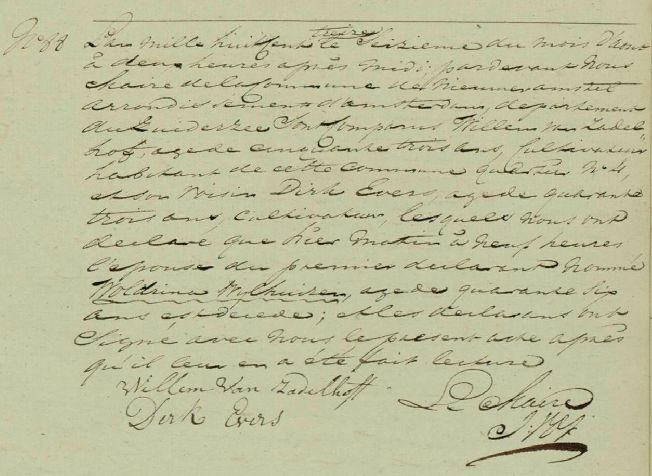 No 88
treize
L'an mille huit Cent le Seizieme du mois d'aout
à deux heures après midi; pardevant nous
Maire de la Commune de Nieuweramstel
arrondissement d'amsterdam, departement
du Zuiderzee Sont Comparus Willem van Zadel
hoff, age de cinquante trois ans, Cultivateur
habitant de cette commune quartier N° 4,
et son Voisin Dirk Evers, age de quarante
trois ans, Cultivateur, lesquels nous ont
declaré que hier matin à neuf heures
l'epouse du premier declarant nommé
Woldrina Wylhuizen, age de quarante six
ans est decede; et les declarans ont
Signé avec nous le present acte après
qu'il leur en a été fait lecture
Willem Van Zadelhoff
Dirk Evers
Le Maire